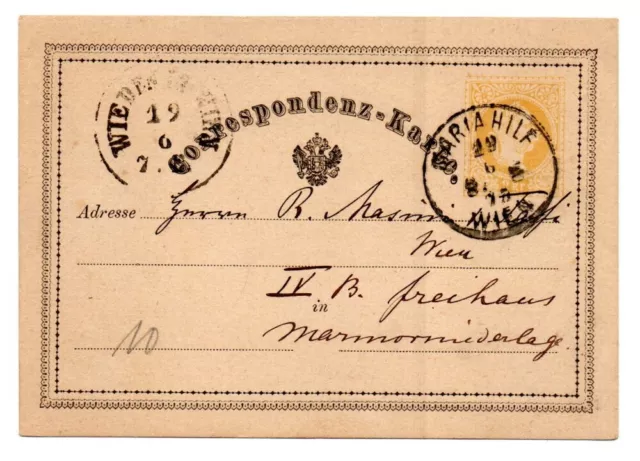 WIEDEN IN WIEN
19
6
7.
Correspondenz-Karte.
MARIAHILF
19
6
WIEN
Adresse Herrn R.
Wien
IV B. Freihaus
in
Marmorniederlage.
10